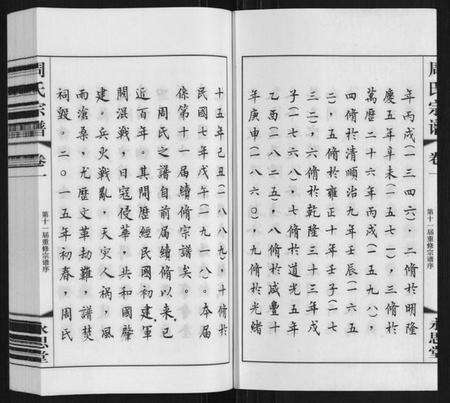 年丙戌(一三四六),二脩於明隆
慶五年辛未(一五七一),三脩於
萬曆二十六年丙戌(一五九八),
四脩於清順治九年壬辰(一六五
二),五脩於雍正十年壬子(一七
三二),六脩於乾隆三十三年戊
子(一七六八),七脩於道光五年
乙酉(一八二五),八脩於咸豐十
年庚申(一八六〇),九脩於光緒
周氏宗譜
卷一
第十一届重修宗譜序
永思堂
十五年己丑(一八八九),十脩於
民國七年戊午(一九一八)。本届
係第十一届續脩宗譜矣。
周氏之譜自前届續脩以來,已
近百年。其間歷經民國初建軍
閥混戰,日寇侵華,共和國肇
建,兵災戰亂,天灾人禍,風
雨滄桑,尤歷文革劫難,譜焚
祠毀。二〇一五年初春,周氏
周氏宗譜
卷一
第十一届重修宗譜序
永思堂